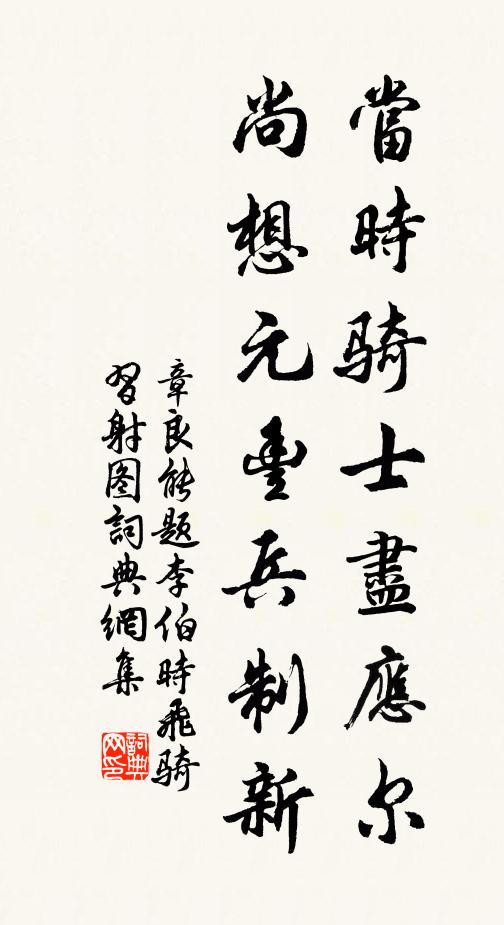 當時骑士盡應尔
尚想元豐兵制新
章良能题李伯時飛骑
習射图詞典網集
詞典网印